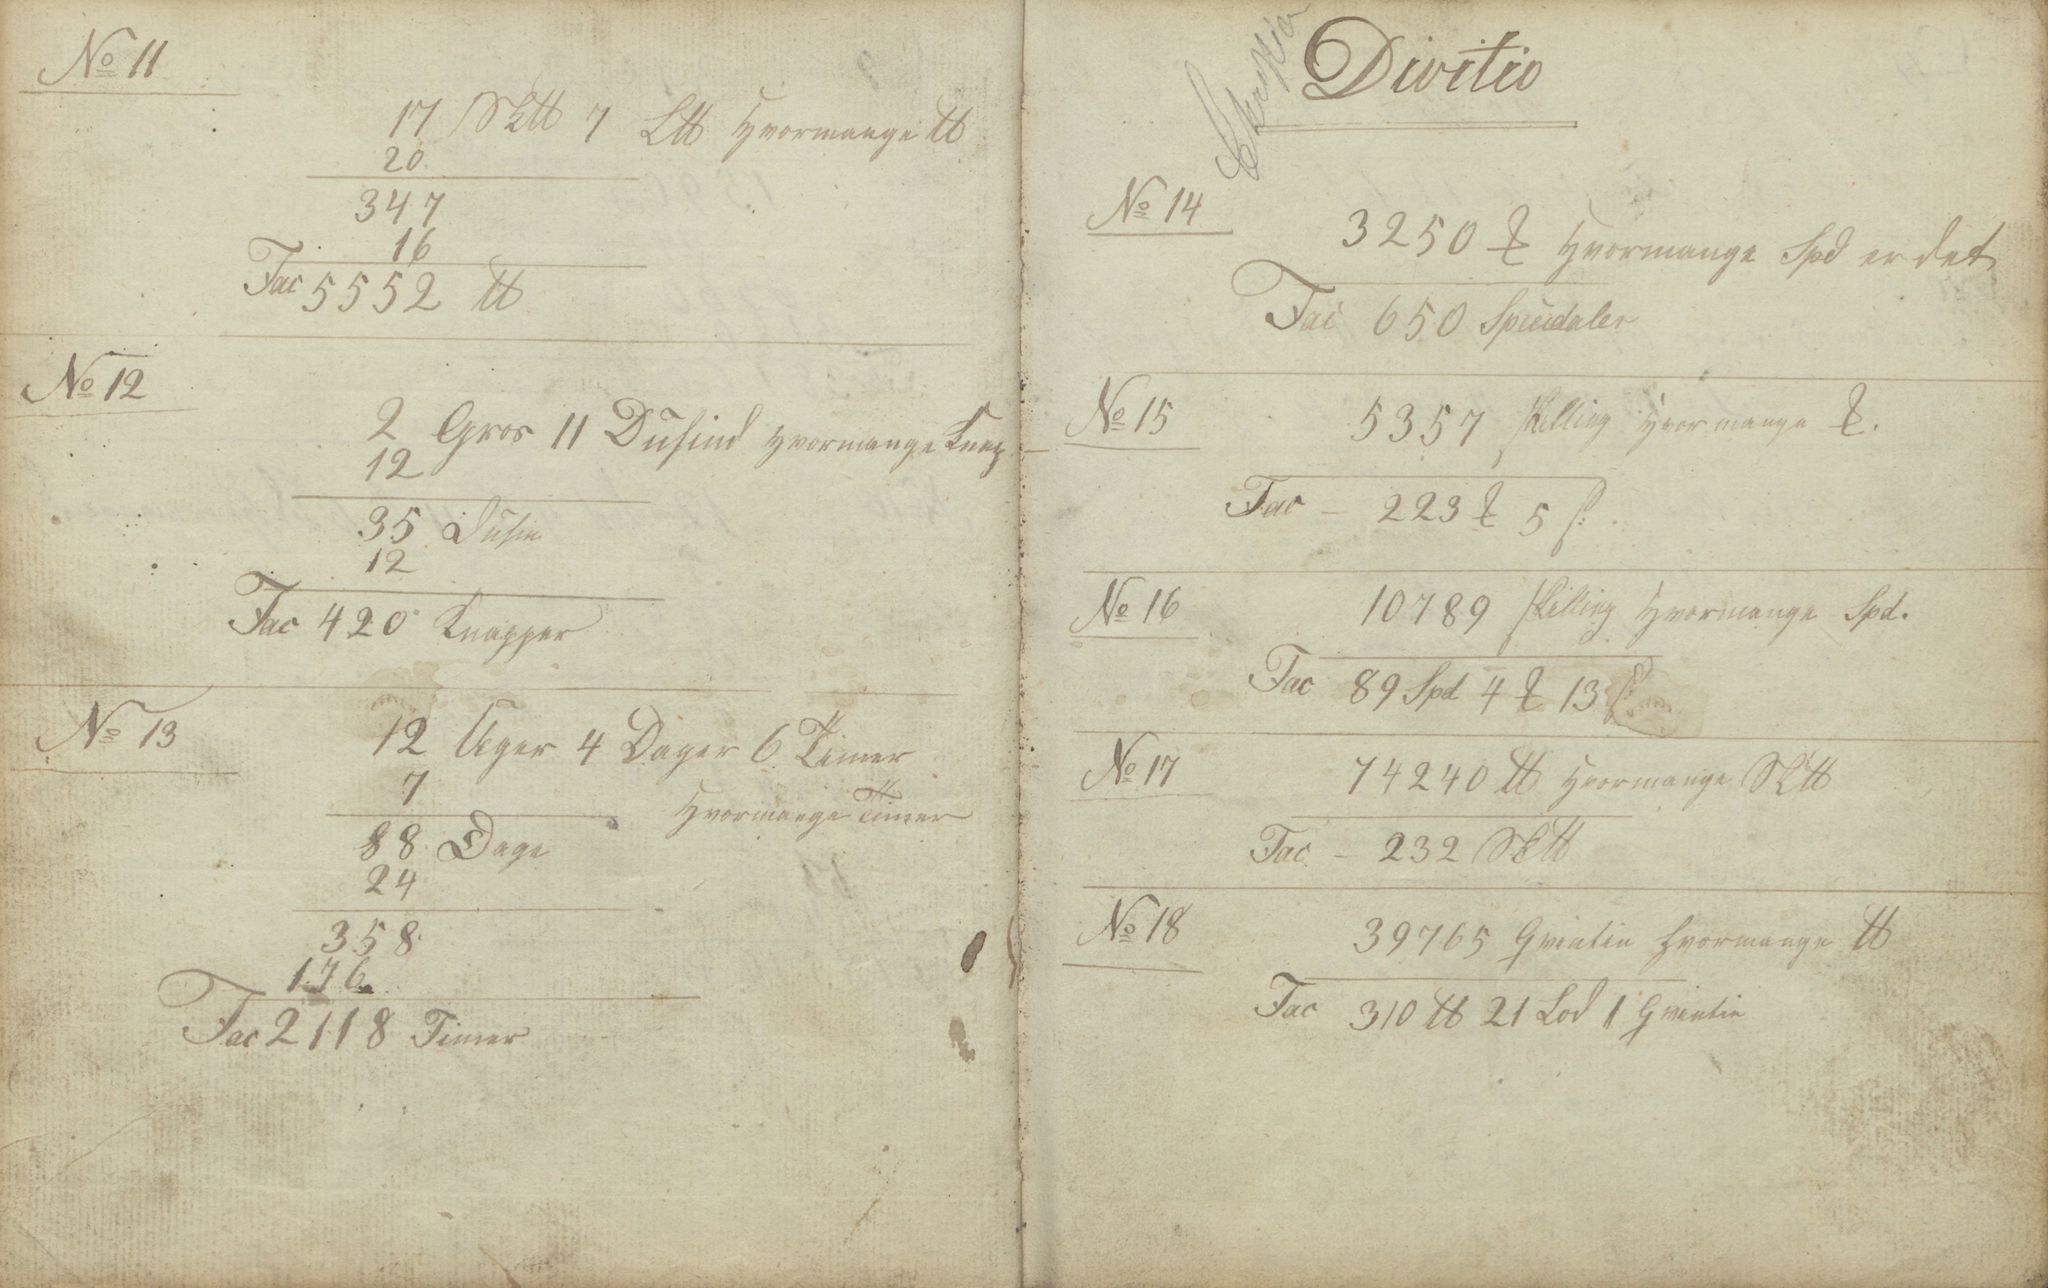 No 11
17 Sk℔ 7 L℔ Hvormange ℔
20
347
16
Fac 5552 ℔
No 12
2 Gros 11 Dusind Hvormange Knap
12
35 Dusin
12
Fac 420 Knapper
No 13
12 Uger 4 Dager 6 Timer
7
Hvormange Timer
88 Dage
24
358
176
Fac 2118 Timer
Divitio
No 14
3250 ₰ Hvormange Spd er det
Fac 650 Speciedaler
No 15
5357 skilling Hvormange ₰.
Fac – 223 ₰ 5 ß.
No 16
10789 skilling Hvormange Spd.
Fac 89 Spd 4 ₰ 13 ß
No 17
74240 ℔ Hvormange Sk℔
Fac – 232 Sk℔
No 18
39765 Qvintin Hvormange ℔
Fac 310 ℔ 21 Lod 1 Qvintin